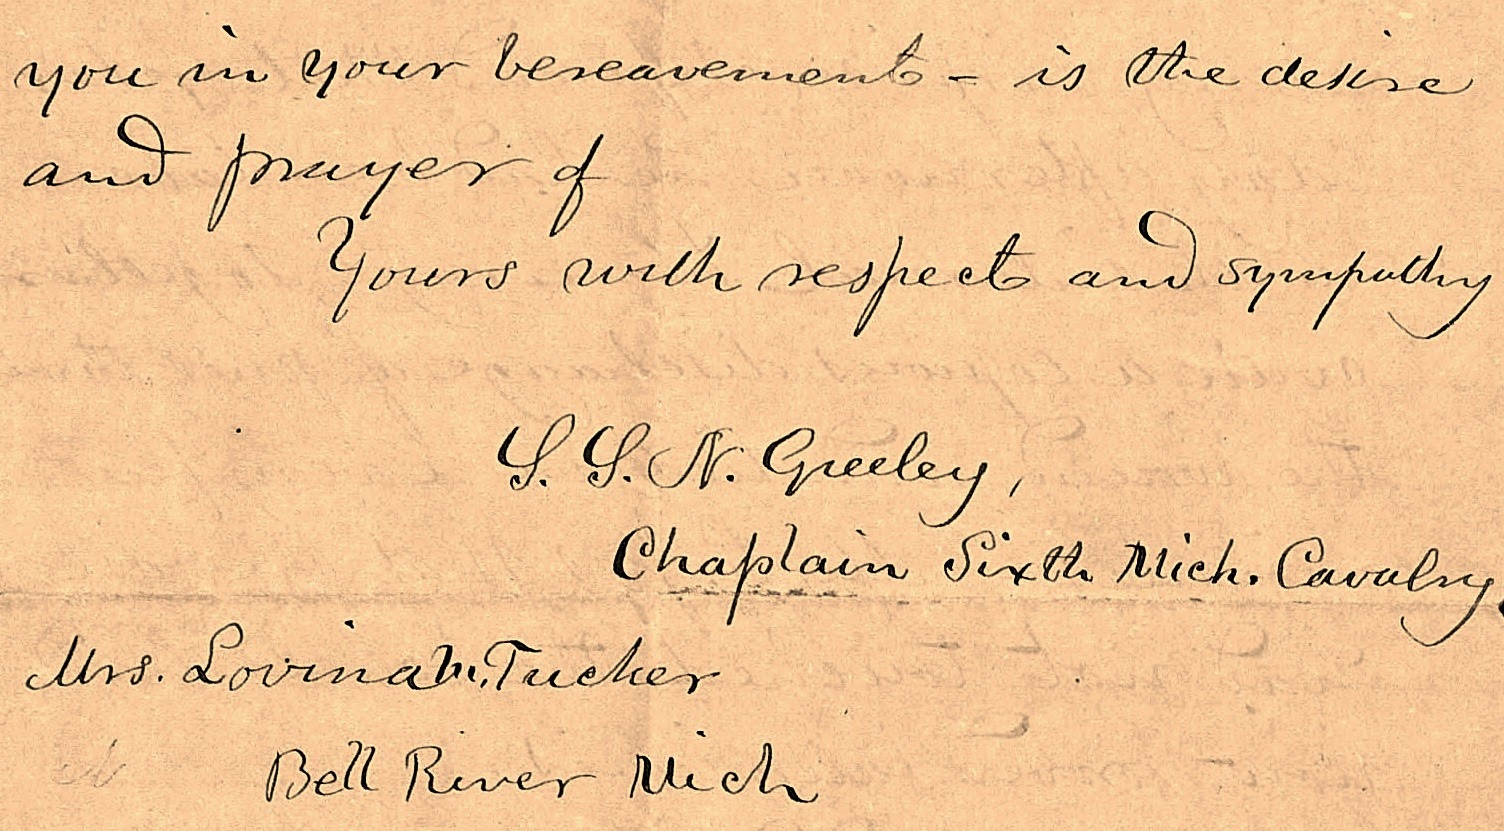 you in your bereavement - is the desire
and prayer of
Yours with respect and sympathy
S. S. N. Greeley,
Chaplain Sixth Mich. Cavalry.
Mrs. Lovina M. Tucker
Bell River Mich